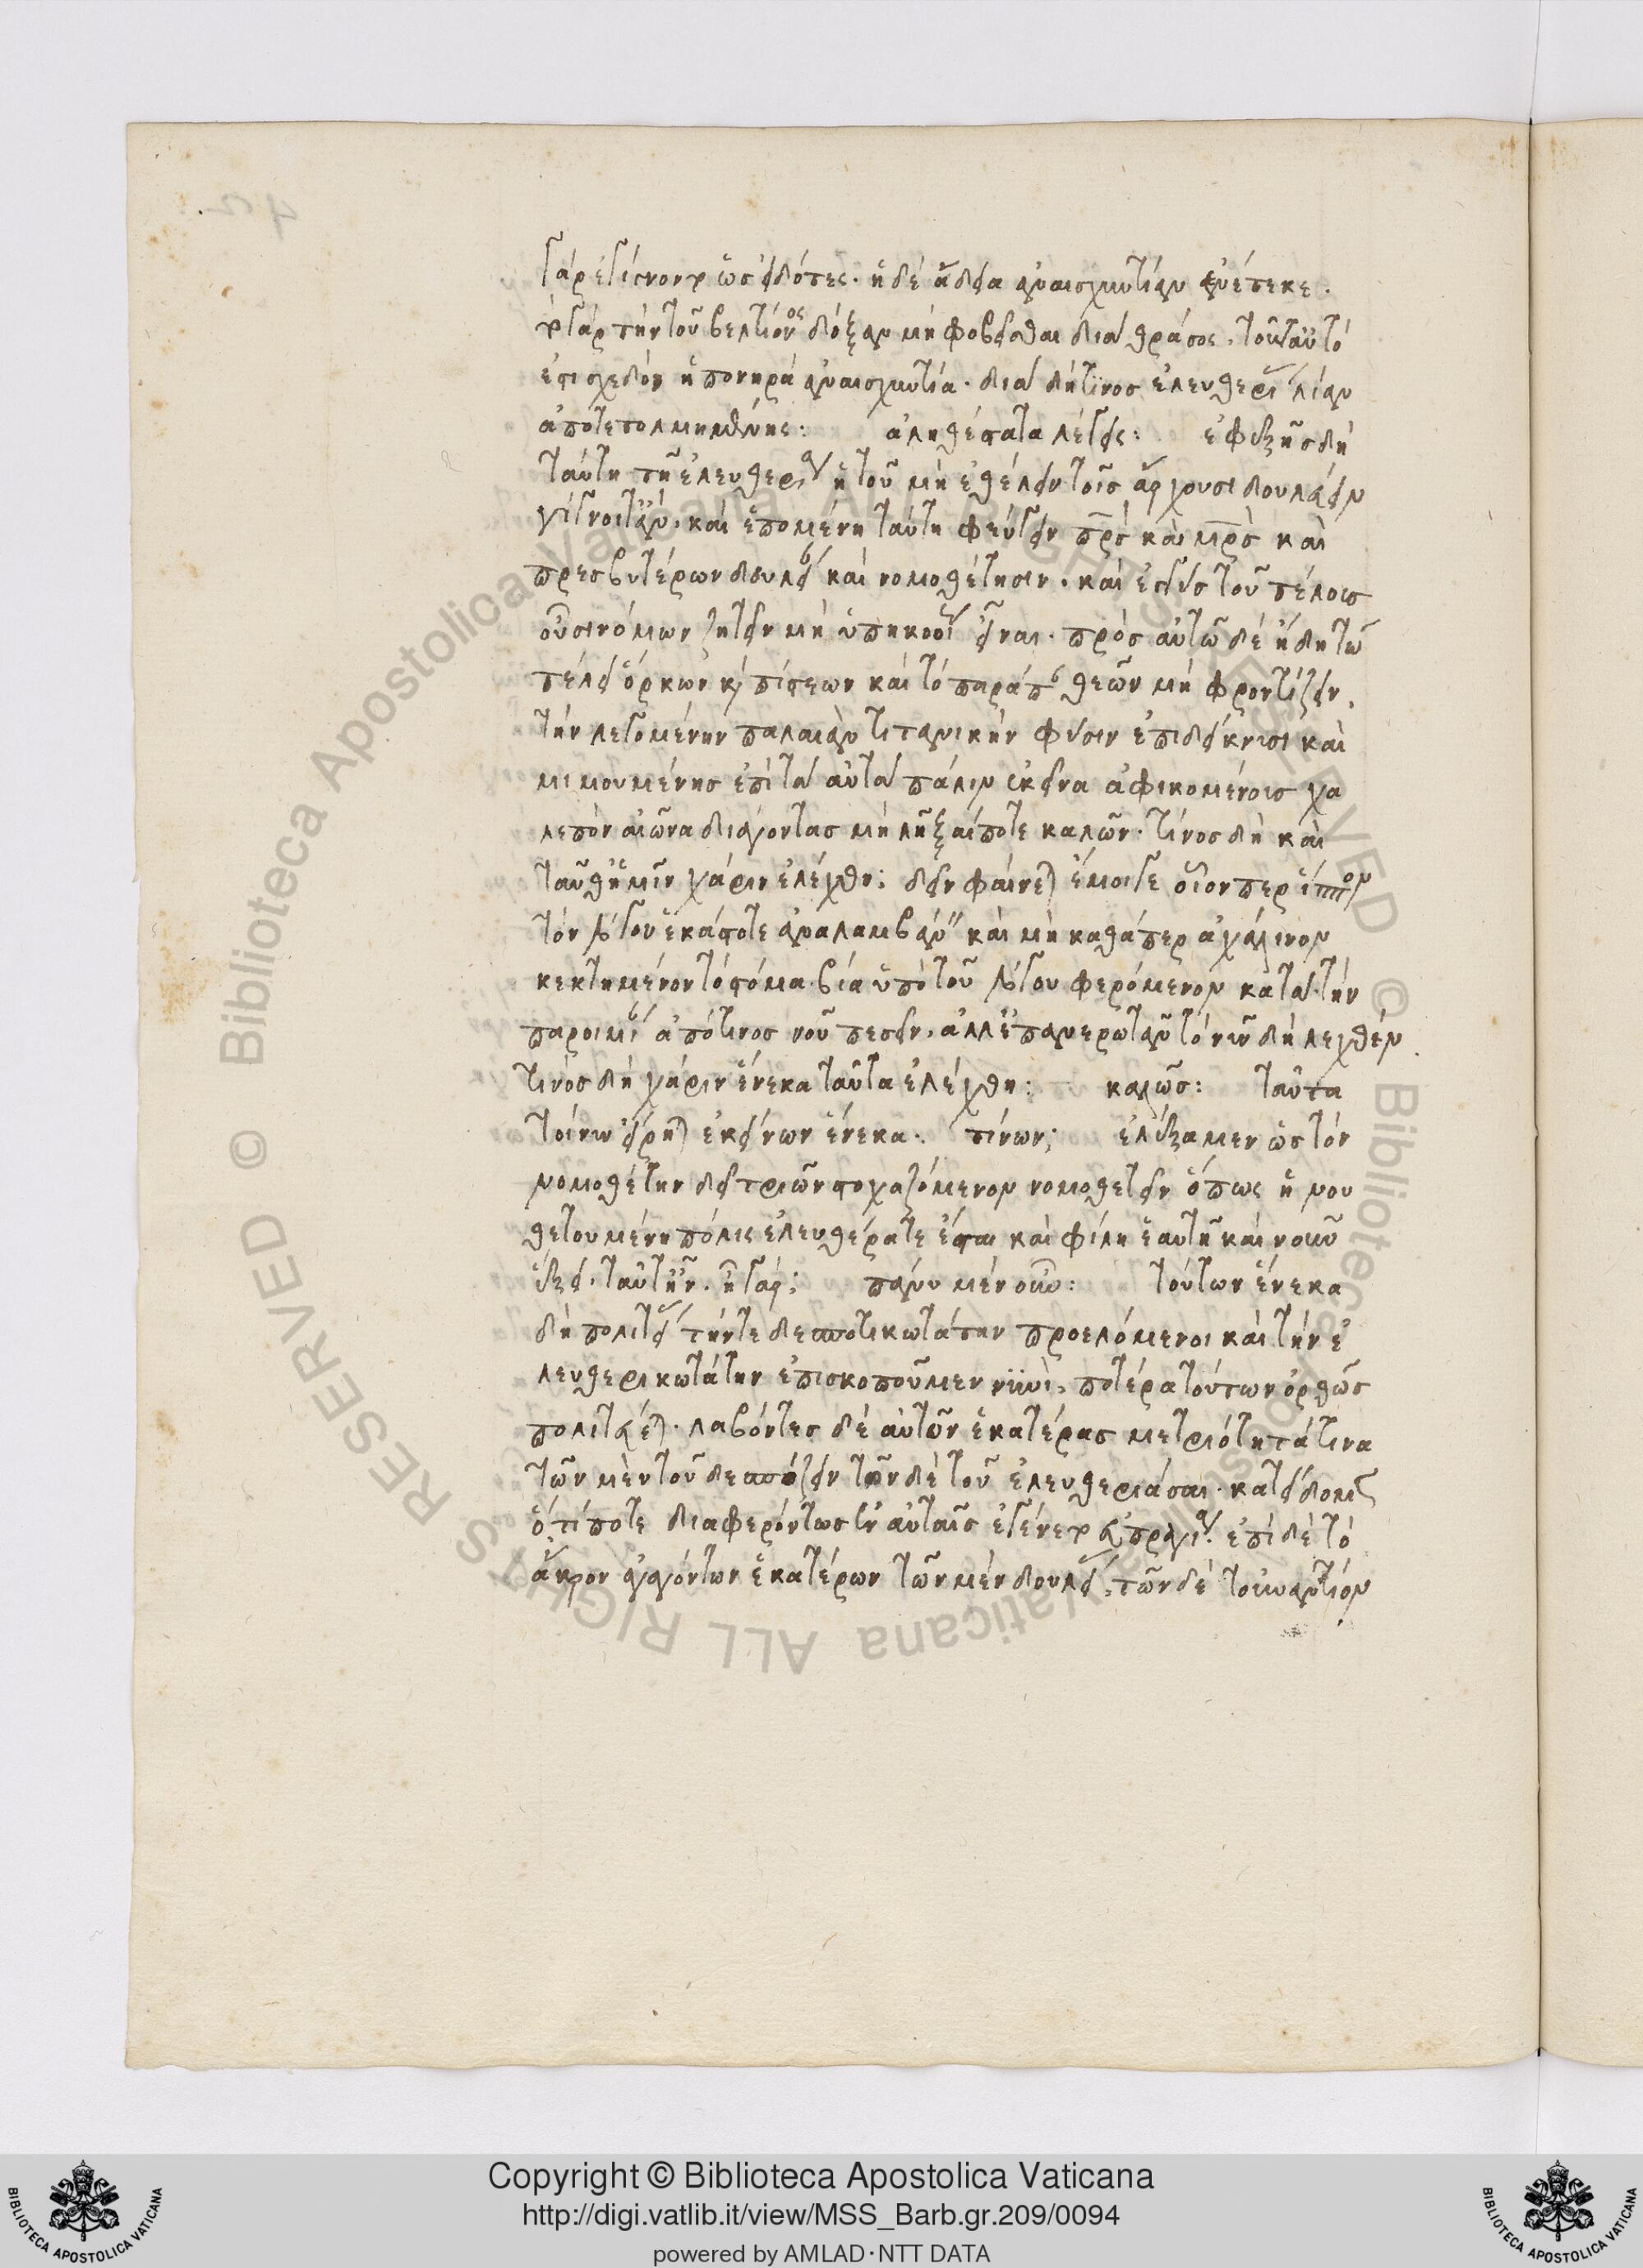 γὰρ ἐγίγνοντο ὡς εἰδότες. ἡ δὲ ἄδεια ἀναισχυντίαν ἐνέτεκε.
τὸ γὰρ τὴν τοῦ βελτίονος δόξαν μὴ φοβεῖσθαι διὰ θράσος. τοῦτ' αὐτό
ἐστι σχεδὸν ἡ πονηρὰ ἀναισχυντία. διὰ δή τινος ἐλευθερίας λίαν
ἀποτετολμημένης: ἀληθέστατα λέγεις: ἐφεξῆς δὴ
ταύτη τῆ ἐλευθερία ἡ τοῦ μὴ ἐθέλειν τοῖς ἄρχουσι δουλεύειν
γίγνοιτ' ἄν. καὶ ἑπομένη ταύτη φεύγειν πρς καὶ μρς καὶ
πρεσβυτέρων δουλείαν καὶ νομοθέτησιν. καὶ ἐγγὺς τοῦ τέλους
οὖσι νόμων ζητεῖν μὴ ὑπηκόοις εἶναι. πρὸς αὐτῶ δὲ ἤδη τῶ
τέλει ὅρκων καὶ πίστεων καὶ τὸ παράπαν θεῶν μὴ φροντίζειν.
τὴν λεγομένην παλαιὰν τιτανικὴν φύσιν ἐπιδείκνυσι καὶ
μιμουμένης ἐπὶ τὰ αὐτὰ πάλιν ἐκεῖνα ἀφικομένοις χα
λεπὸν αἰῶνα διάγοντας μὴ λῆξαί ποτε κακῶν. τίνος δὴ καὶ
ταῦθ' ἡμῖν χάριν ἐλέχθη; δεῖν φαίνεται ἔμοιγε οἷόνπερ ἵππον
τὸν λόγον ἑκάστοτε ἀναλαμβάνειν καὶ μὴ καθάπερ ἀχάλινον
κεκτημένον τὸ στόμα. βία ὑπὸ τοῦ λόγου φερόμενον κατὰ τὴν
παροιμίαν ἀπό τινος νοῦ πεσεῖν. ἀλλ' ἐπανερωτᾶν τὸ νῦν δὴ λεχθὲν
τίνος δὴ χάριν ἕνεκα ταῦτα ἐλέχθη: καλῶς: ταῦτα
τοίνυν εἴρηται ἐκείνων ἕνεκα. τίνων; ἐλέξαμεν ὡς τὸν
νομοθέτην δεῖ τριῶν στοχαζόμενον νομοθετεῖν ὅπως ἡ νου
θετουμένη πόλις ἐλευθέρα τε ἔσται καὶ φίλη ἑαυτῆ καὶ νοῦν
ἕξει. ταῦτ' ἦν. ἦ γάρ; πάνυ μὲν οὖν: τούτων ἕνεκα
δὴ πολιτείας τήν τε δεσποτικωτάτην προελόμενοι καὶ τὴν ἐ
λευθερικωτάτην ἐπισκοποῦμεν νυνὶ. ποτέρα τούτων ὀρθῶς
πολιτεύεται. λαβόντες δὲ αὐτῶν ἑκατέρας μετριότητά τινα
τῶν μὲν τοῦ δεσπόζειν τῶν δὲ τοῦ ἐλευθεριάσαι. κατείδομεν
ὅτι ποτε διαφερόντως ἐν αὐταῖς ἐγένετο εὐπραγία. ἐπὶ δὲ τὸ
ἄκρον ἀγόντων ἑκατέρων τῶν μὲν δουλείας, τῶν δὲ τοὐναντίον
Copyright © Biblioteca Apostolica Vaticana
http://digi.vatlib.it/view/MSS_Barb.gr.209/0094
powered by AMLAD·NTT DATA
BIBLIOTECA APOSTOLICA VATICANA
BIBLIOTECA APOSTOLICA VATICANA
© Biblioteca Apostolica Vaticana ALL RIGHTS RESERVED
© Biblioteca Apostolica Vaticana ALL RIGHTS RESERVED